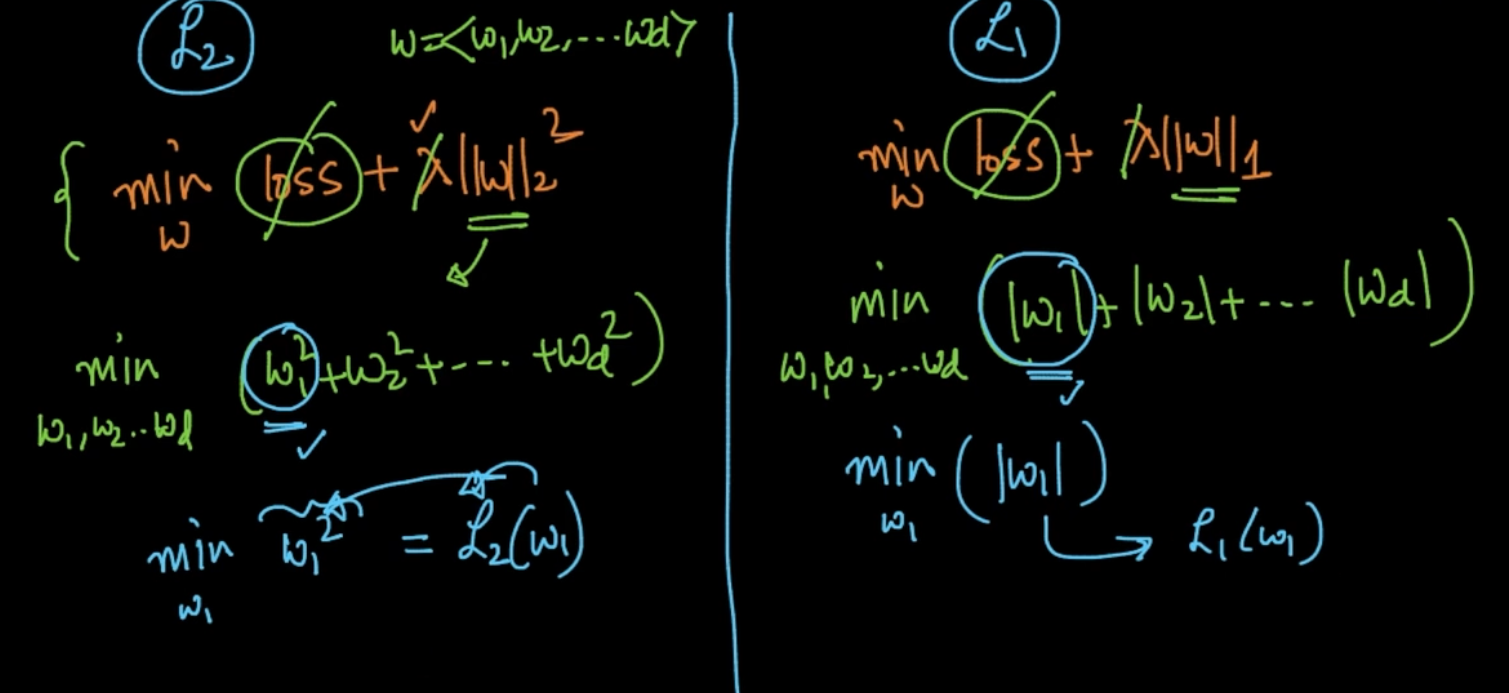 ℒ₂ w=<w₁,w₂,...wd>
min loss + λ||w||₂²
w
min (w₁²+w₂²+--- +wd²)
w₁,w₂..wd
min w₁² = ℒ₂(w₁)
w₁
ℒ₁
min loss + λ||w||₁
w
min (|w₁|+|w₂|+--- |wd|)
w₁,w₂,...wd
min (|w₁|)
w₁
ℒ₁(w₁)